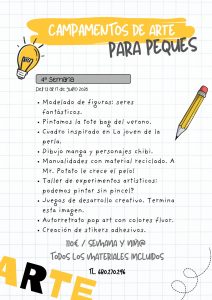 CAMPAMENTOS DE ARTE
PARA PEQUES
4ª Semana
Del 13 al 17 de julio 2025
• Modelado de figuras: seres
fantásticos.
• Pintamos la tote bag del verano.
• Cuadro inspirado en La joven de la
perla.
• Dibujo manga y personajes chibi.
• Manualidades con material reciclado. A
Mr. Potato le crece el pelo!
• Taller de experimentos artísticos:
podemos pintar sin pincel?
• Juegos de desarrollo creativo. Termina
esta imagen..
• Autorretrato pop art con colores flúor.
• Creación de stikers adhesivos.
110€ / SEMANA Y NIÑ@
TODOS LOS MATERIALES INCLUIDOS
TL. 680.270.296
ARTE